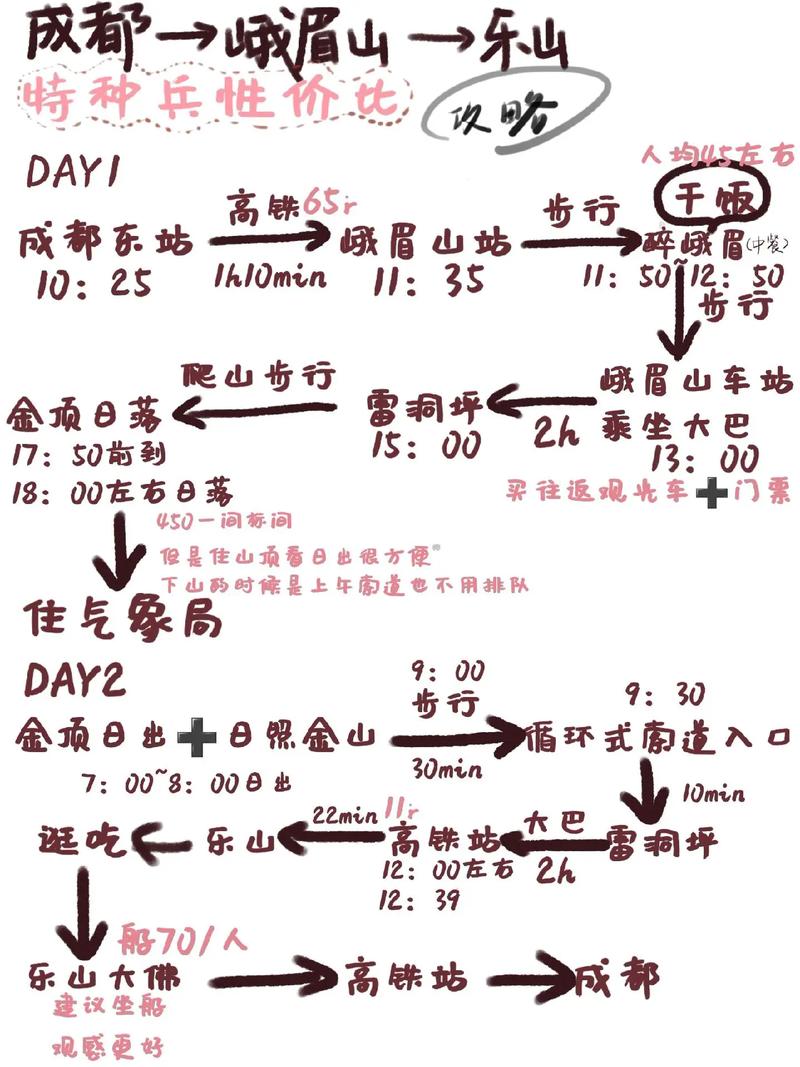 成都→峨眉山→乐山
特种兵性价比
攻略
DAY1
人均45左右
干饭
成都东站
10：25
高铁65r
1h10min
峨眉山站
11：35
步行
醉峨眉(中餐)
11：50~12：50
步行
峨眉山车站
乘坐大巴
13：00
买往返观光车➕门票
2h
雷洞坪
15：00
爬山步行
金顶日落
17：50前到
18：00左右日落
450一间标间
但是住山顶看日出很方便
下山的时候是上午索道也不用排队
住气象局
DAY2
金顶日出➕日照金山
7：00~8：00日出
9：00
步行
30min
9：30
循环式索道入口
10min
雷洞坪
大巴
2h
高铁站
12：00左右
12：39
11r
22min
乐山
逛吃
乐山大佛
船70/人
建议坐船
观感更好
高铁站
成都